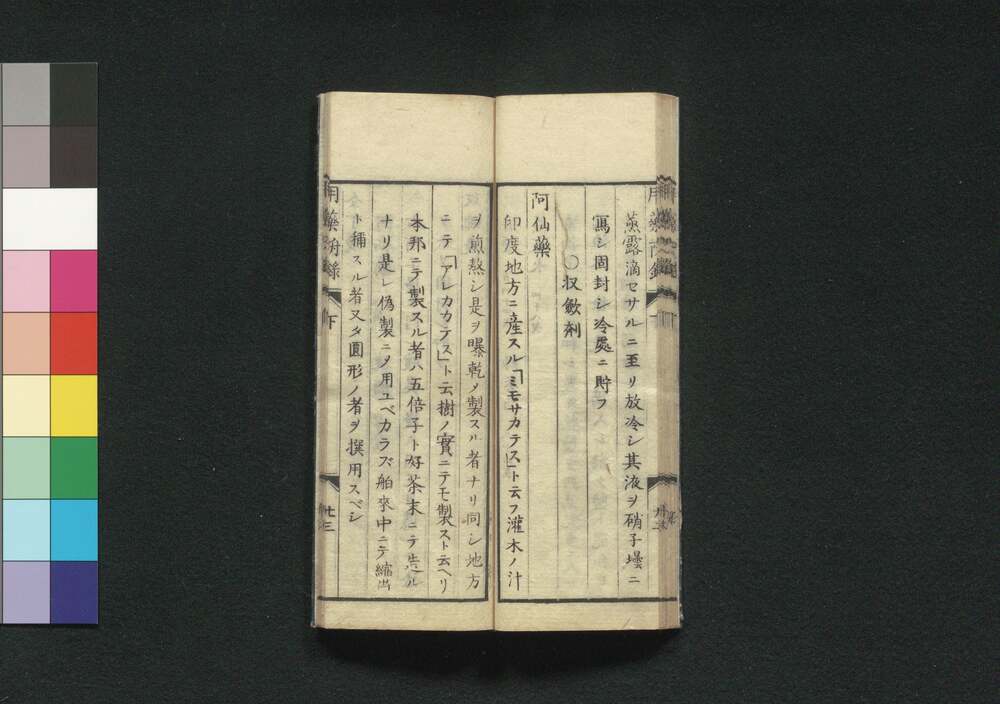 蒸露滴セサルニ至リ放冷シ其液ヲ硝子壜ニ
寫シ固封シ冷處ニ貯フ
〇収斂剤
阿仙藥
印度地方ニ産スル「ミモサカテス」ト云フ灌木ノ汁
ヲ煎熬シ是ヲ曝乾メ製スル者ナリ同シ地方
ニテ「アレカカテス」ト云樹ノ實ニテモ製スト云ヘリ
本邦ニテ製スル者ハ五倍子ト好茶末ニテ造ル
ナリ是レ偽製ニメ用ユベカラズ舶来中ニテ縮出
ト稱スル者又タ圓形ノ者ヲ撰用スベシ
用藥
下
廿三